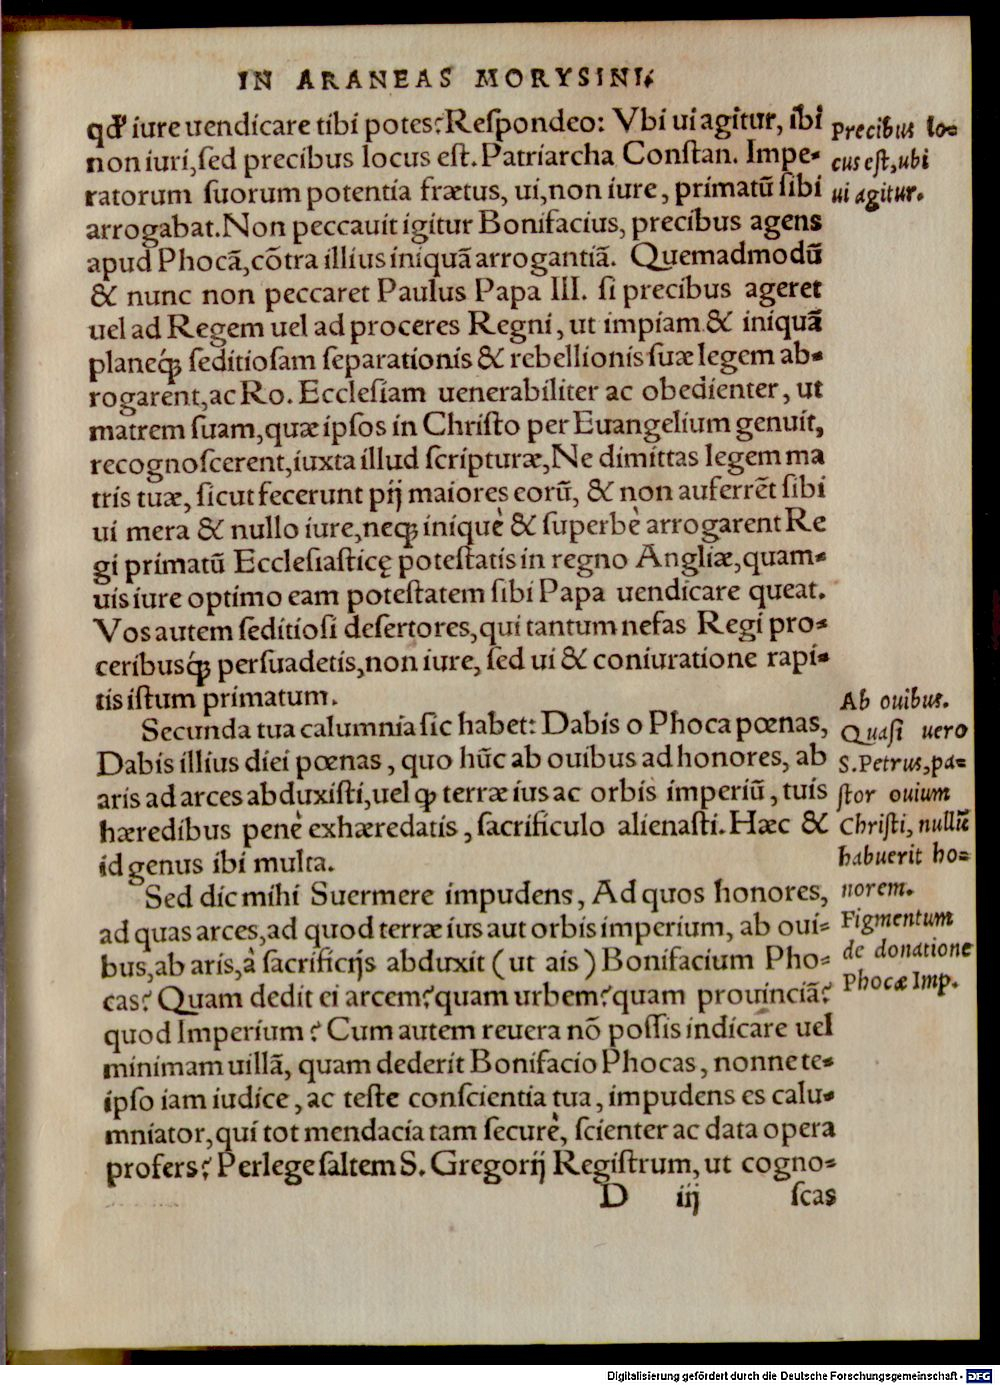 IN ARANEAS MORYSINI.
qđ iure uendicare tibi potes? Reſpondeo: Vbi ui agitur, ibi
non iuri, ſed precibus locus eſt. Patriarcha Conſtan. Impe-
ratorum ſuorum potentia frætus, ui, non iure, primatū ſibi
arrogabat. Non peccauit igitur Bonifacius, precibus agens
apud Phocā, cōtra illius iniquā arrogantiā. Quemadmodū
& nunc non peccaret Paulus Papa III. ſi precibus ageret
uel ad Regem uel ad proceres Regni, ut impiam & iniquā
planeq́ꝫ ſeditioſam ſeparationis & rebellionis ſuæ legem ab-
rogarent, ac Ro. Eccleſiam uenerabiliter ac obedienter, ut
matrem ſuam, quæ ipſos in Chriſto per Euangelium genuit,
recognoſcerent, iuxta illud ſcripturæ, Ne dimittas legem ma
tris tuæ, ſicut fecerunt pij maiores eorū, & non auferrēt ſibi
ui mera & nullo iure, neqꝫ iniquè & ſuperbè arrogarent Re
gi primatū Eccleſiaſticę poteſtatis in regno Angliæ, quam-
uis iure optimo eam poteſtatem ſibi Papa uendicare queat.
Vos autem ſeditioſi deſertores, qui tantum nefas Regi pro-
ceribusq́ꝫ perſuadetis, non iure, ſed ui & coniuratione rapi-
tis iſtum primatum.
Secunda tua calumnia ſic habet: Dabis o Phoca pœnas,
Dabis illius diei pœnas, quo hūc ab ouibus ad honores, ab
aris ad arces abduxiſti, uel ꝙ terræ ius ac orbis imperiū, tuis
hæredibus penè exhæredatis, ſacrificulo alienaſti. Hæc &
id genus ibi multa.
Sed dic mihi Suermere impudens, Ad quos honores,
ad quas arces, ad quod terræ ius aut orbis imperium, ab oui-
bus, ab aris, à ſacrificijs abduxit (ut ais) Bonifacium Pho-
cas? Quam dedit ei arcem? quam urbem? quam prouinciā?
quod Imperium? Cum autem reuera nō poſſis indicare uel
minimam uillā, quam dederit Bonifacio Phocas, nonne te-
ipſo iam iudice, ac teſte conſcientia tua, impudens es calu-
mniator, qui tot mendacia tam ſecurè, ſcienter ac data opera
profers? Perlege ſaltem S. Gregorij Regiſtrum, ut cogno-
D iij ſcas
Precibus lo-
cus eſt, ubi
ui agitur.
Ab ouibus.
Quaſi uero
S. Petrus, pa-
ſtor ouium
Chriſti, nullū
habuerit ho-
norem.
Figmentum
de donatione
Phocæ Imp.
Digitalisierung gefördert durch die Deutsche Forschungsgemeinschaft - DFG